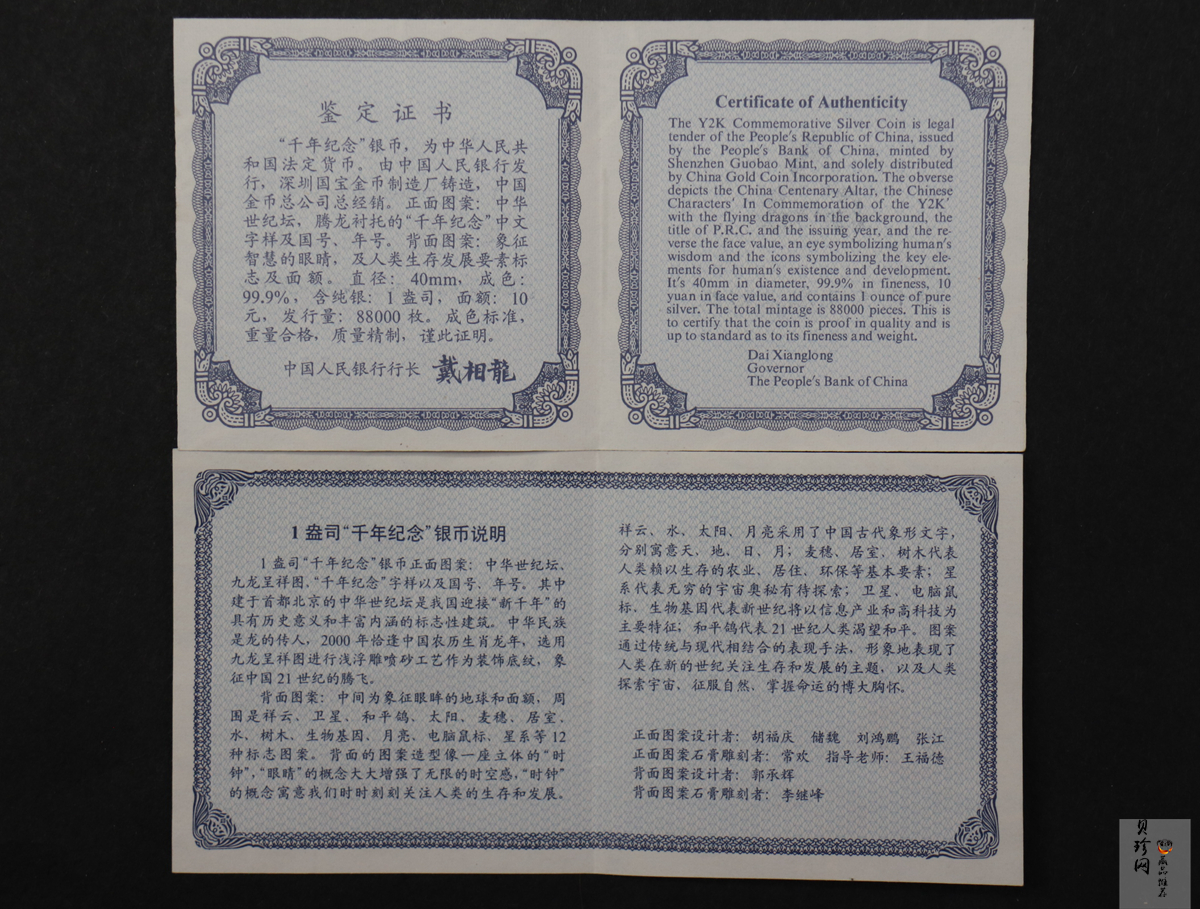 鉴定证书
“千年纪念”银币，为中华人民共
和国法定货币。由中国人民银行发
行，深圳国宝金币制造厂铸造，中国
金币总公司总经销。正面图案：中华
世纪坛，腾龙衬托的“千年纪念”中文
字样及国号、年号。背面图案：象征
智慧的眼睛，及人类生存发展要素标
志及面额。直径：40mm，成色：
99.9%，含纯银：1盎司，面额：10
元，发行量：88000枚。成色标准，
重量合格，质量精制，谨此证明。
中国人民银行行长 戴相龍
Certificate of Authenticity
The Y2K Commemorative Silver Coin is legal
tender of the People's Republic of China, issued
by the People's Bank of China, minted by
Shenzhen Guobao Mint, and solely distributed
by China Gold Coin Incorporation. The obverse
depicts the China Centenary Altar, the Chinese
Characters' In Commemoration of the Y2K'
with the flying dragons in the background, the
title of P.R.C. and the issuing year, and the re-
verse the face value, an eye symbolizing human's
wisdom and the icons symbolizing the key ele-
ments for human's existence and development.
It's 40mm in diameter, 99.9% in fineness, 10
yuan in face value, and contains 1 ounce of pure
silver. The total mintage is 88000 pieces. This is
to certify that the coin is proof in quality and is
up to standard as to its fineness and weight.
Dai Xianglong
Governor
The People's Bank of China
1盎司“千年纪念”银币说明
1盎司“千年纪念”银币正面图案：中华世纪坛、
九龙呈祥图，“千年纪念”字样以及国号、年号。其中
建于首都北京的中华世纪坛是我国迎接“新千年”的
具有历史意义和丰富内涵的标志性建筑。中华民族
是龙的传人，2000年恰逢中国农历生肖龙年，选用
九龙呈祥图进行浅浮雕喷砂工艺作为装饰底纹，象
征中国21世纪的腾飞。
背面图案：中间为象征眼眸的地球和面额，周
围是祥云、卫星、和平鸽、太阳、麦穗、居室、
水、树木、生物基因、月亮、电脑鼠标、星系等12
种标志图案。背面的图案造型像一座立体的“时
钟”，“眼睛”的概念大大增强了无限的时空感，“时钟”
的概念寓意我们时时刻刻关注人类的生存和发展。
祥云、水、太阳、月亮采用了中国古代象形文字，
分别寓意天、地、日、月；麦穗、居室、树木代表
人类赖以生存的农业、居住、环保等基本要素；星
系代表无穷的宇宙奥秘有待探索；卫星、电脑鼠
标、生物基因代表新世纪将以信息产业和高科技为
主要特征；和平鸽代表21世纪人类渴望和平。图案
通过传统与现代相结合的表现手法，形象地表现了
人类在新的世纪关注生存和发展的主题，以及人类
探索宇宙、征服自然、掌握命运的博大胸怀。
正面图案设计者：胡福庆 储魏 刘鸿鹏 张江
正面图案石膏雕刻者：常欢 指导老师：王福德
背面图案设计者：郭承辉
背面图案石膏雕刻者：李继峰
贝珍网
藏品推荐